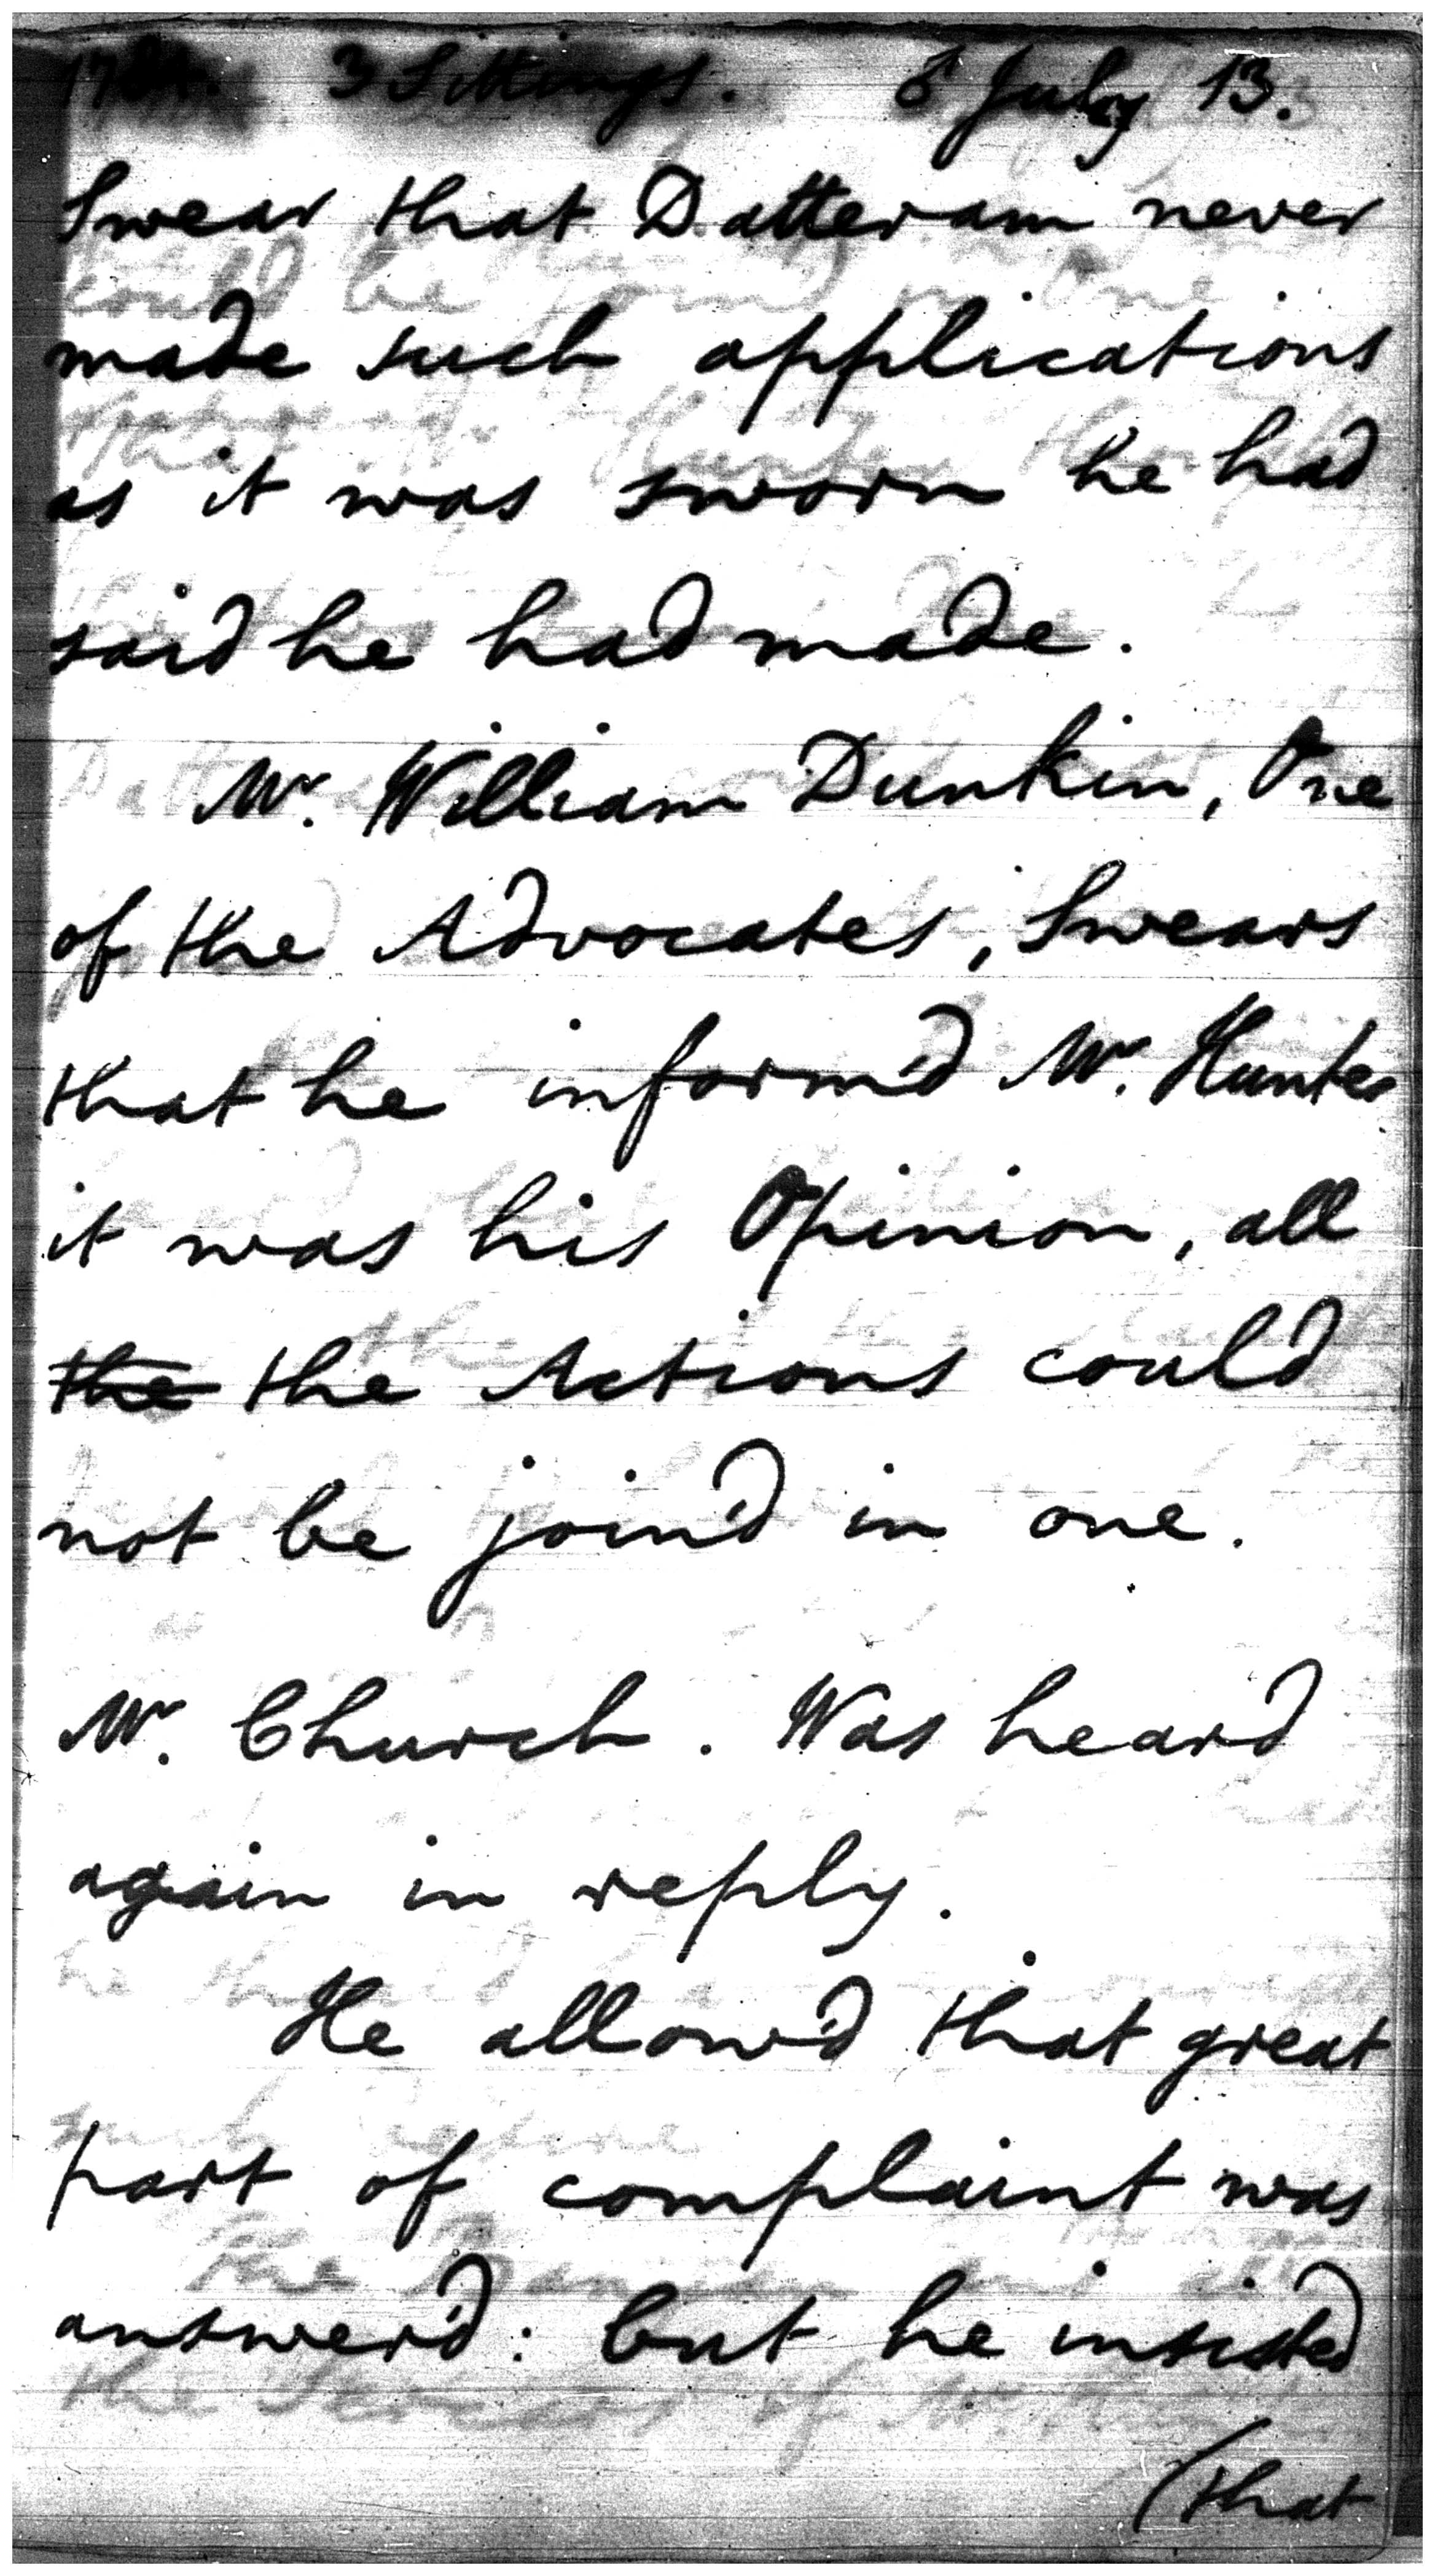 3 Sittings. July 13.
Swear that Datteram never
made such applications
as it was sworn he had
said he had made.
Mr. William Dunkin, One
of the Advocates, Swears
that he inform'd Mr. Hunter
it was his Opinion, all
the the Actions could
not be join'd in one.
Mr. Church. Was heard
again in reply.
He allow'd that great
part of complaint was
answer'd: but he insisted
(that